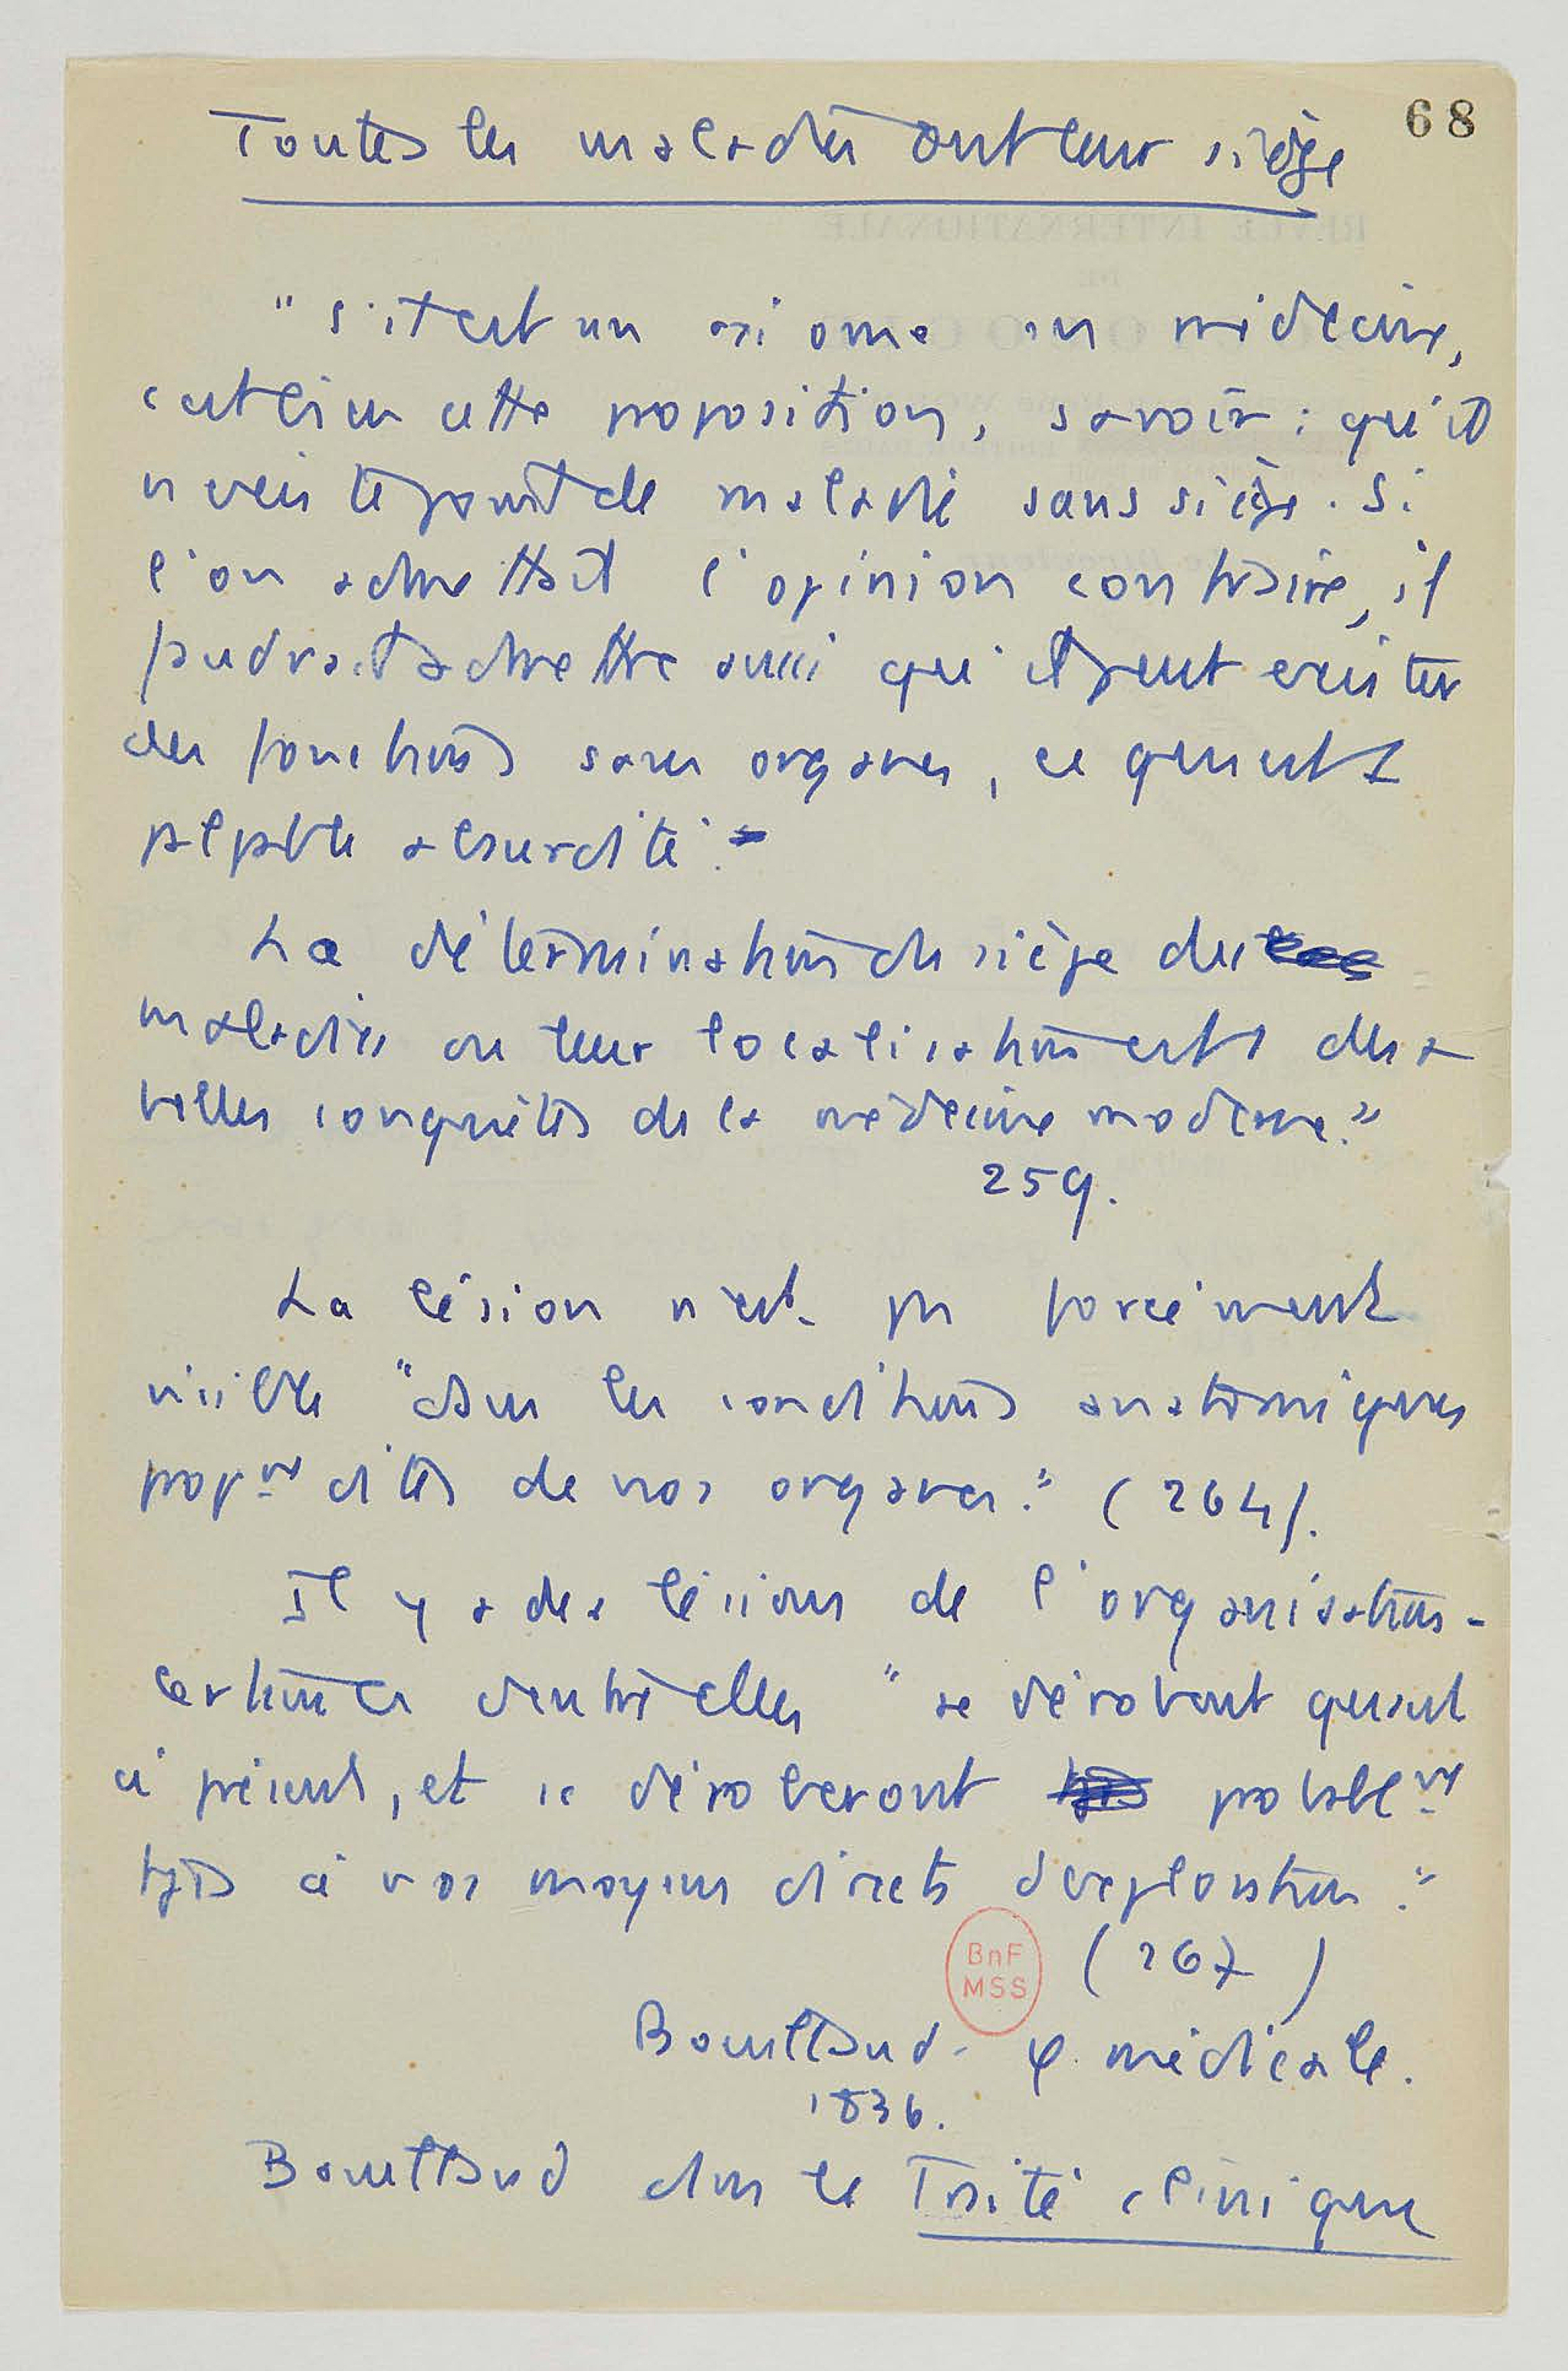 68
Toutes les maladies ont leur siège
"S'il est un axiome en médecine,
c'est bien cette proposition, savoir : qu'il
n'existe point de maladie sans siège. Si
l'on admettait l'opinion contraire, il
faudrait admettre aussi qu'il peut exister
des fonctions sans organes, ce qui est 1
palpable absurdité.
La détermination du siège des
maladies ou leur localisation est 1 des +
belles conquêtes de la médecine moderne."
259.
La lésion n'est pas forcément
visible "dans les conditions anatomiques
propnt dites de nos organes." (264).
Il y a des lésions de l'organisation -
certaines d'entre elles "se dérobent quant
à présent, et se déroberont probablnt
tjs à nos moyens directs d'exploration."
(267)
BnF
MSS
Bouillaud. φ. médicale.
1836.
Bouillaud dans le Traité clinique